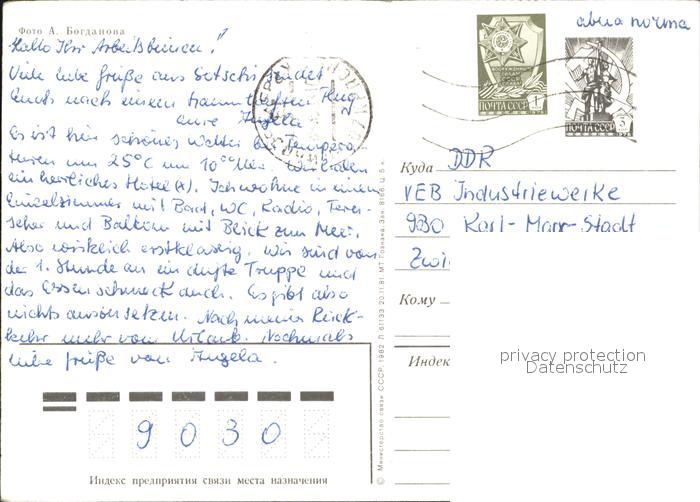 Фото А. Богданова
Hallo Ihr Arbeitsbienen!
Viele liebe Grüße aus Sotschi sendet
Euch nach einem traumhaften Flug
eure Angela
Es ist hier schönes Wetter bei Tempera-
turen um 25°C um 10⁰⁰ Uhr. Wir haben
ein herrliches Hotel. Ich wohne in einem
Einzelzimmer mit Bad, WC, Radio, Fern-
seher und Balkon mit Blick zum Meer.
Also wirklich erstklassig. Wir sind von
der 1. Stunde an ein dufte Truppe und
das Essen schmeckt auch. Es gibt also
nichts auszusetzen. Nach meiner Rück-
kehr mehr vom Urlaub. Nochmals
liebe Grüße von Angela.
9 0 3 0
Индекс предприятия связи места назначения
© Министерство связи СССР, 1982 Л 61133 20.11.81. МТ Гознака. Зак. 8166 Ц. 5 к.
авиа почта
ПОЧТА СССР 1
ПОЧТА СССР 3
Куда DDR
VEB Industriewerke
9030 Karl-Marx-Stadt
Zwi
Кому
Индек
privacy protection
Datenschutz